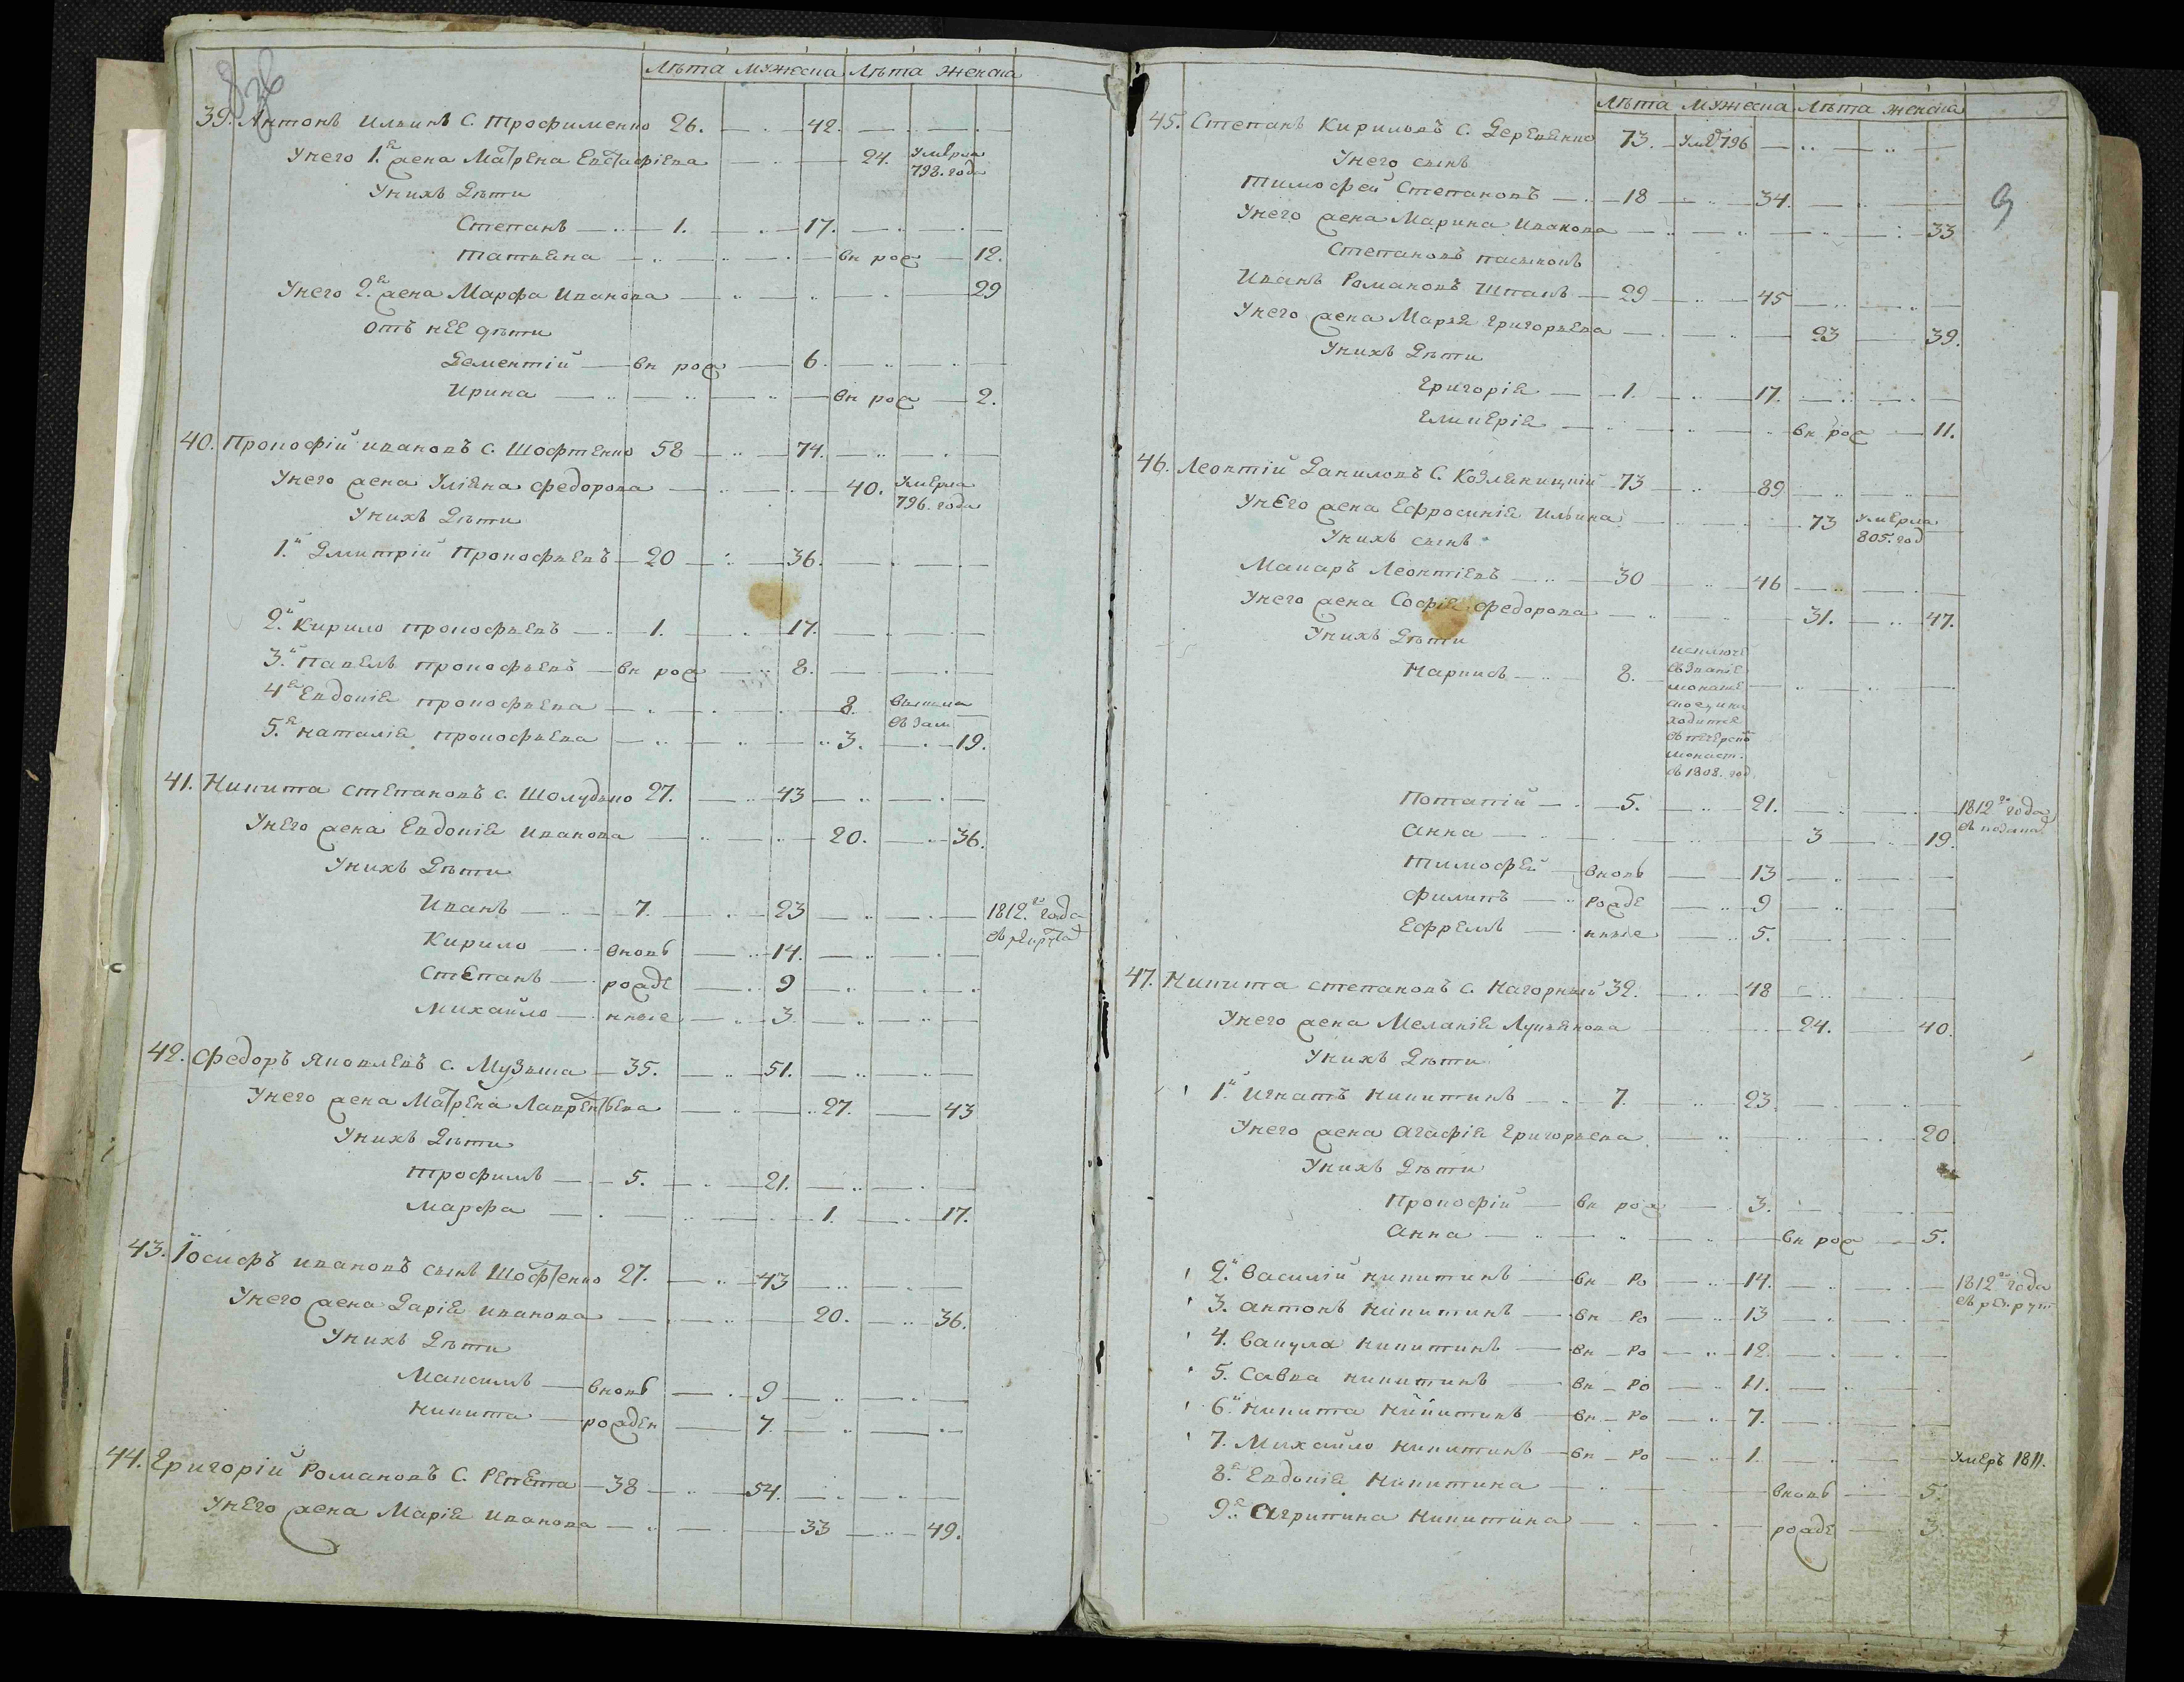 Лѣта мужеска Лѣта женска
39. Антонъ Ильинъ С. Трофименко 26. 42.
Унего 1.я жена Матрена Евстафіева 24. Умерла 798. года
Унихъ Дѣти
Степанъ 1. 17.
Татьяна вн рож 12.
Унего 2.я жена Марфа Иванова 29
Отъ нее дѣти
Дементій вн рож 6.
Ирина вн рож 2.
40. Прокофій Ивановъ С. Шофтенко 58 74.
Унего жена Уліяна Федорова 40. Умерла 796. года
Унихъ Дѣти
1.й Дмитрій Прокофьевъ 20 36.
2.й Кирило Прокофьевъ 1. 17.
3.й Павелъ Прокофьевъ вн рож 8.
4я Евдокія Прокофьева 8. вышла въ зам
5.я Наталія Прокофьева 3. 19.
41. Никита Степановъ С. Шолудько 27. 43
Унего жена Евдокія Иванова 20. 36.
Унихъ Дѣти
Иванъ 7. 23 1812.го года
Кирило вновь 14.
Степанъ рожде 9
Михайло нные 3
42. Федоръ Яковлевъ С. Музыка 35. 51.
Унего жена Матрена Лаврентьева 27. 43
Унихъ Дѣти
Трофимъ 5. 21.
Марфа 1. 17.
43. Іосифъ Ивановъ сынъ Шофтенко 27. 43
Унего жена Дарія Иванова 20. 36.
Унихъ Дѣти
Максимъ вновь 9
Никита рожден 7.
44. Григорій Романовъ С. Репета 38 54.
Унего жена Марія Иванова 33 49.
Лѣта мужеска Лѣта женска
9
45. Степанъ Кириловъ С. Деревянко 73. Ум 796
Унего сынъ
Тимофей Степановъ 18 34.
Унего жена Марина Иванова 33
Степановъ пасынокъ
Иванъ Романовъ Шпакъ 29 45
Унего жена Марья Григорьева 23 39.
Унихъ Дѣти
Григорія 1. 17.
Гликерія вн рож 11.
46. Леонтій Даниловъ С. Козляницкій 73 89
Унего жена Ефросинія Ильина 73 Умерла 805. год
Унихъ сынъ
Макаръ Леонтіевъ 30 46
Унего жена Софія Федорова 31. 47.
Унихъ Дѣти
Марписъ 8. исключе
въ званіе
монаше
ское, и на
ходится
въ печерско
монаст.
въ 1808. год
Потапій 5. 21. 1812го года
Анна 3 19.
Тимофей вновь 13
Филипъ рожде 9
Ефремъ нные 5.
47. Никита Степановъ С. Нагорный 32. 48
Унего жена Меланія Лукьянова 24. 40.
Унихъ Дѣти
1.й Игнатъ Никитинъ 7. 23.
Унего жена Агафія Григорьева 20.
Унихъ Дѣти
Прокофій вн рож 3.
Анна вн рож 5.
2.й Василій Никитинъ вн ро 14. 1812го года
3. Антонъ Никитинъ вн ро 13
4. Вакула Никитинъ вн ро 12.
5. Савка Никитинъ вн ро 11.
6.й Никита Никитинъ вн ро 7.
7. Михайло Никитинъ вн ро 1. Умеръ 1811.
8.я Евдокія Никитина вновь 5.
9.я Агрипина Никитина рожде 3.